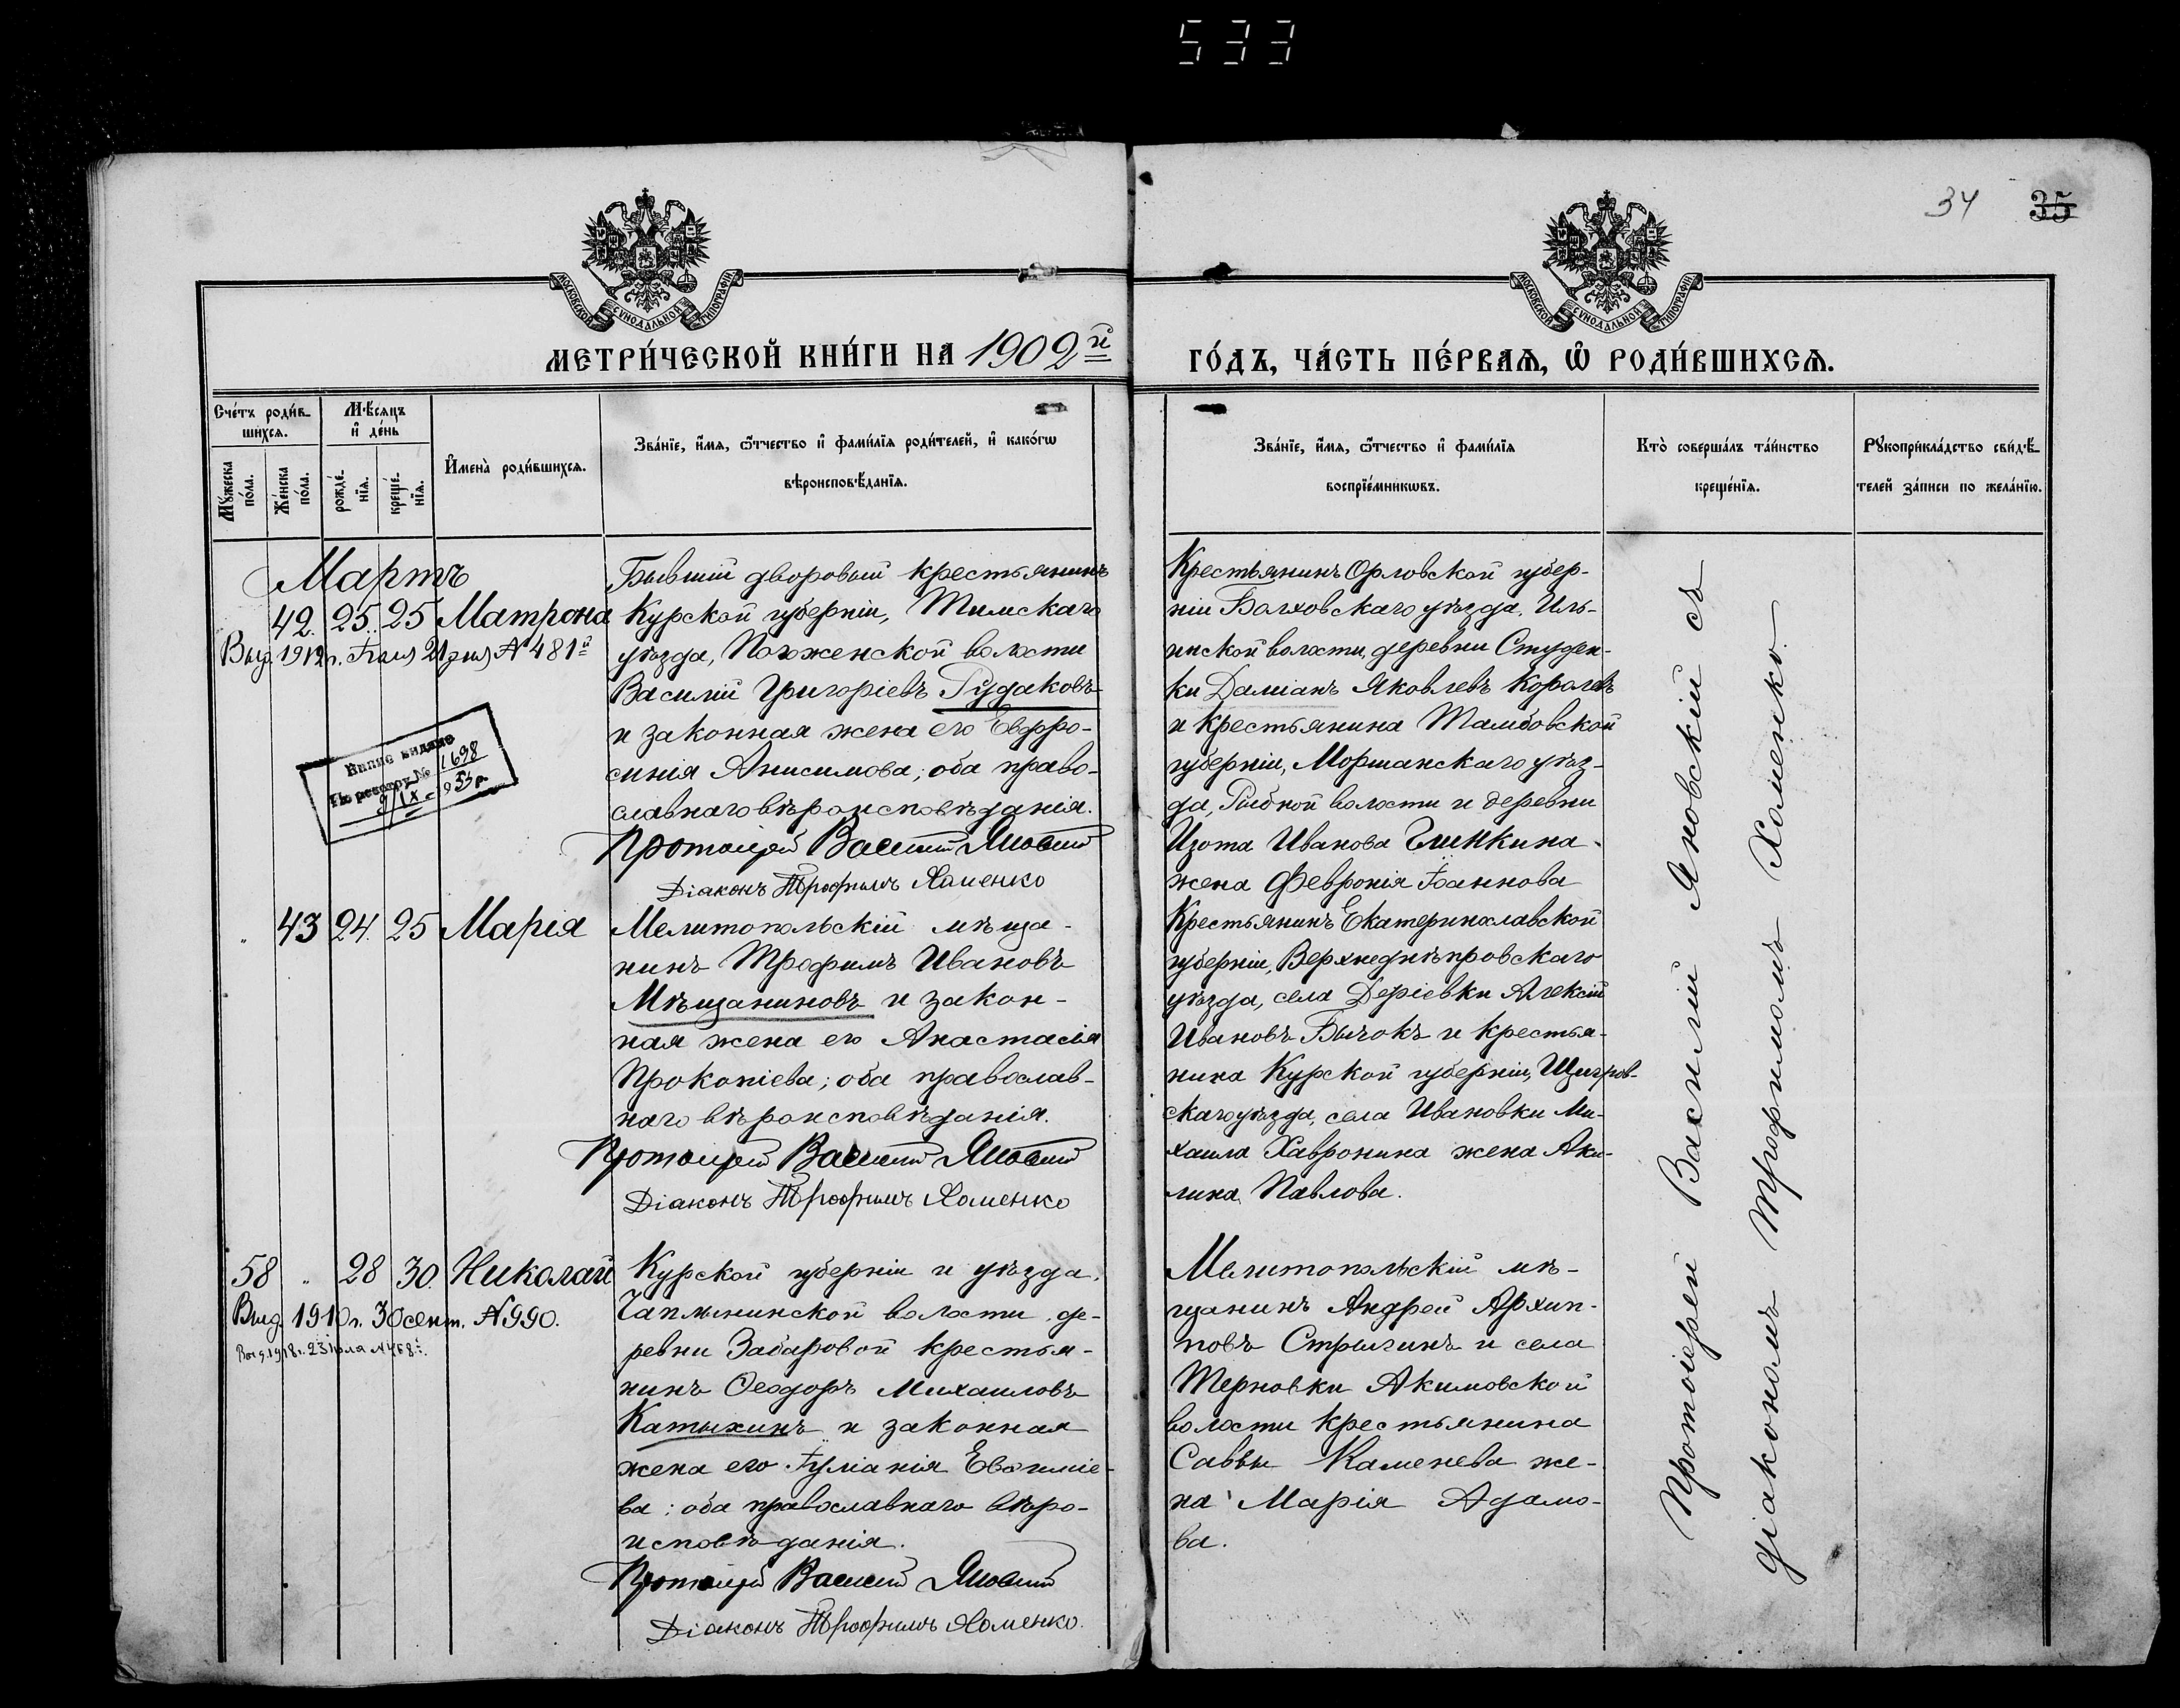 533
34 35
МОСКОВСКОЙ СѴНОДАЛЬНОЙ ТИПОГРАФІИ
МОСКОВСКОЙ СѴНОДАЛЬНОЙ ТИПОГРАФІИ
МЕТРИ́ЧЕСКОЙ КНИ́ГИ НА 1902й
ГО́ДЪ, ЧА́СТЬ ПЕ́РВАѦ, Ѡ РОДИ́ВШИХСѦ.
Сче́тъ роди́в-
шихсѧ.
Мѣ́сѧцъ
и҆ де́нь
Мꙋ́жеска
по́ла.
Же́нска
по́ла.
рожде́-
нїѧ.
креще́-
нїѧ.
И҆мена̀ роди́вшихсѧ.
Зва́нїе, и҆́мѧ, ѻ҆́тчество и҆ фами́лїѧ роди́телей, и҆ како́гѡ
вѣроисповѣ́данїѧ.
Зва́нїе, и҆́мѧ, ѻ҆́тчество и҆ фами́лїѧ
воспрїе́мникѡвъ.
Кто̀ соверша́лъ та́инство
креще́нїѧ.
Рꙋкоприкла́дство свидѣ́-
телей за́писи по жела́нїю.
Мартъ
42. 25. 25 Матрона
Выд. 1912 г. Іюня 21 дня № 481й
Бывшій дворовый крестьянинъ
Курской губерніи, Тимскаго
уѣзда, Погоженской волости
Василій Григоріевъ Рудаковъ
и законная жена его Евфро-
синія Анисимова; оба право-
славнаго вѣроисповѣданія.
Протоіерей Василій Яновскій
Діаконъ Трофимъ Хоменко
По реестру № 1698
9/IX
Крестьянинъ Орловской губер-
ніи Болховскаго уѣзда, Иль-
инской волости, деревни Студен-
ки Даміанъ Яковлевъ Королевъ
и крестьянина Тамбовской
губерніи, Моршанскаго уѣз-
да, Рыбной волости и деревни
Изота Иванова Глинкина
жена Февронія Іоаннова
43 24. 25 Марія
Мелитопольскій мѣща-
нинъ Трофимъ Ивановъ
Мѣщаниновъ и закон-
ная жена его Анастасія
Прокопіева; оба православ-
наго вѣроисповѣданія.
Протоіерей Василій Яновскій
Діаконъ Трофимъ Хоменко
Крестьянинъ Екатеринославской
губерніи, Верхнеднѣпровскаго
уѣзда, села Деріевки Алексій
Ивановъ Бычокъ и крестья-
нина Курской губерніи, Щигров-
скаго уѣзда, села Ивановки Ми-
хаила Хавронина жена Аку-
лина Павлова.
58 „ 28 30. Николай
Выд. 1910 г. 30 сент. № 990.
Курской губерніи и уѣзда,
Чаплыгинской волости, де-
ревни Забаровой крестья-
нинъ Ѳеодоръ Михаиловъ
Катыхинъ и законная
жена его Іуліанія Евѳиміе-
ва; оба православнаго вѣро-
исповѣданія.
Протоіерей Василій Яновскій
Діаконъ Трофимъ Хоменко.
Мелитопольскій мѣ-
щанинъ Андрей Архип-
повъ Стрыгинъ и села
Терновки Акимовской
волости крестьянина
Саввы Каменева же-
на Марія Адамо-
ва.
Протоіерей Василій Яновскій съ
діакономъ Трофимомъ Хоменко.